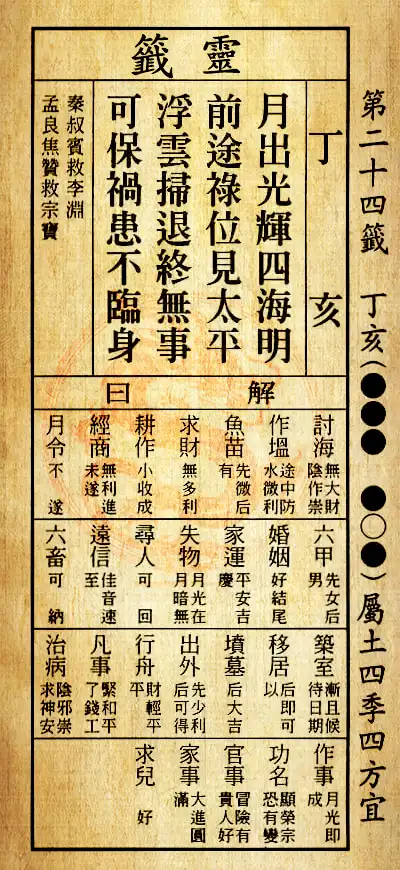 第二十四籤 丁亥(●●● ●○●)屬土四季四方宜
靈籤
丁亥
月出光輝四海明
前途祿位見太平
浮雲掃退終無事
可保禍患不臨身
秦叔賓救李淵
孟良焦贊救宗寶
解曰
討海 無大財陰作祟
作塭 途中防水微利
魚苗 先微后有
求財 無多利
耕作 小收成
經商 無利進未遂
月令 不遂
六甲 先女后男
婚姻 好結尾
家運 平安吉慶
失物 月光在月暗無
尋人 可回
遠信 佳音速至
六畜 可納
築室 漸且候待日期
移居 后即可以
墳墓 后大吉
出外 先少利后可得
行舟 財輕平平
凡事 緊和平了錢工
治病 陰邪祟求神安
作事 月光即成
功名 顯榮宗恐有變
官事 冒險有貴人好
家事 大進圓滿
求兒 好